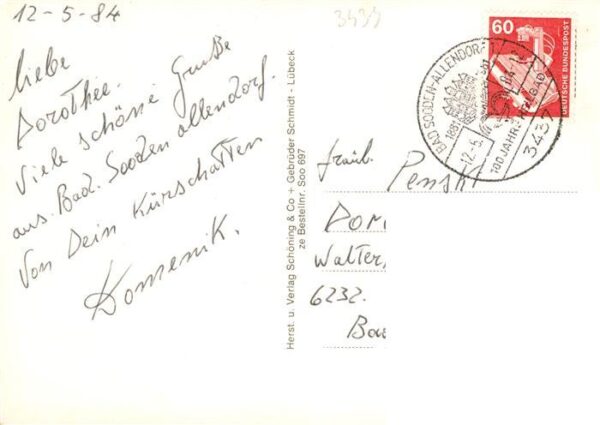 12-5-84
liebe
Dorothee.
Viele schöne Grüße
aus. Bad. Sooden allendorf.
Von Dein Kurschatten
Domenik.
Herst. u. Verlag Schöning & Co + Gebrüder Schmidt - Lübeck
ze Bestellnr. Soo 697
60
DEUTSCHE BUNDESPOST
BAD SOODEN-ALLENDORF
1881
12.-5.
100 JAHRE HEILBAD
3437
fräul.
Penskt
Dor
Walter,
6232.
Ba